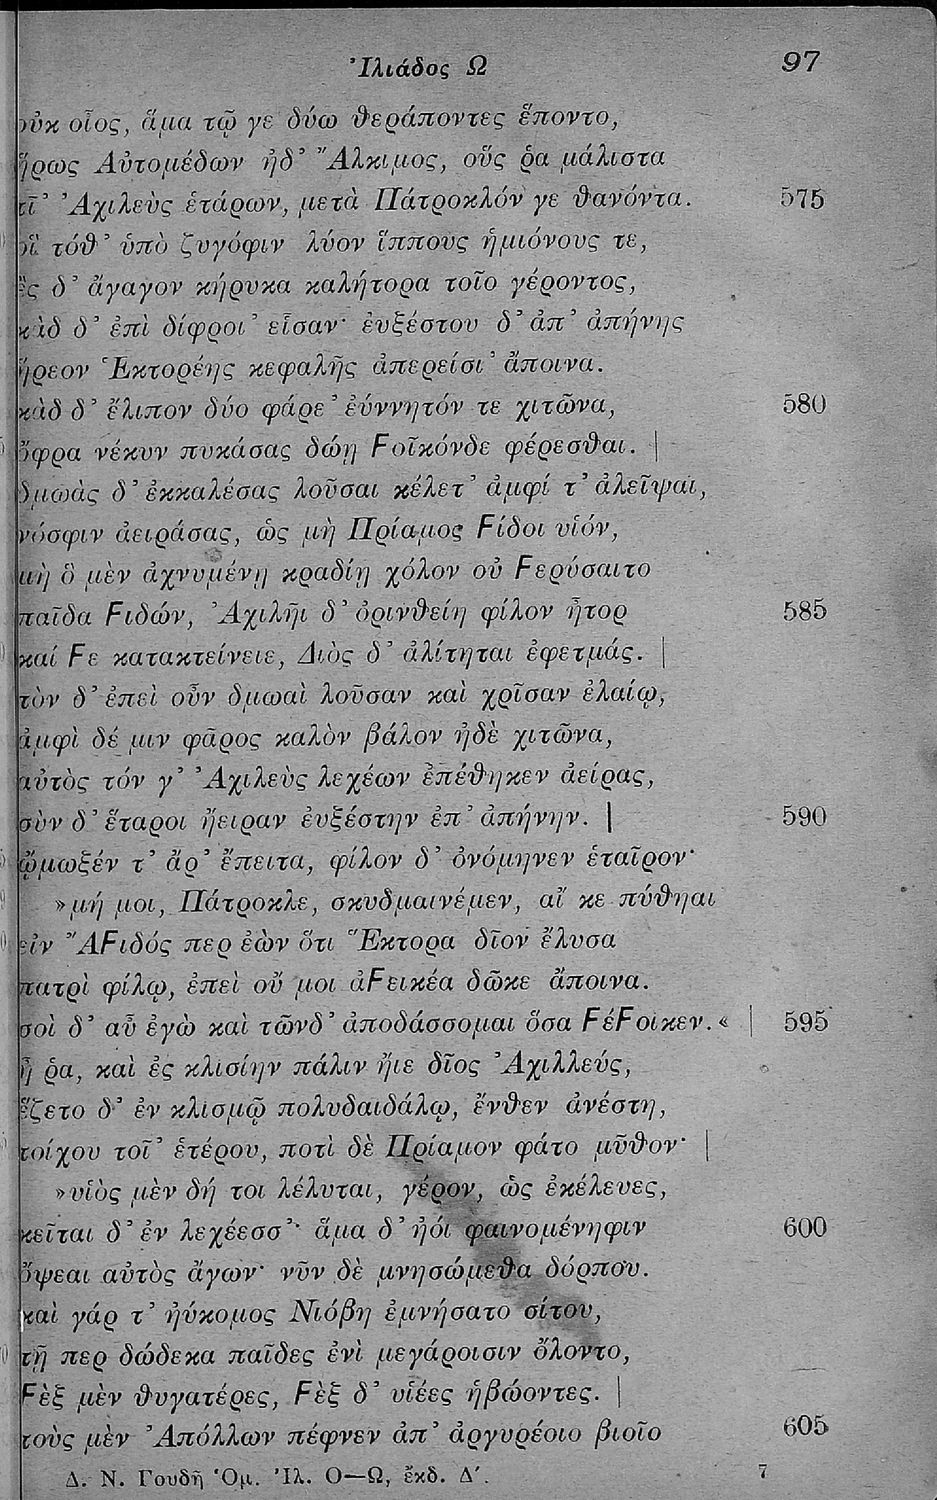 Ἰλιάδος Ω 97
οὐκ οἶος, ἅμα τῷ γε δύω θεράποντες ἕποντο,
ἥρως Αὐτομέδων ἠδ' Ἄλκιμος, οὕς ῥα μάλιστα
τῖ' Ἀχιλεὺς ἑτάρων, μετὰ Πάτροκλόν γε θανόντα. 575
οἳ τόθ' ὑπὸ ζυγόφιν λύον ἵππους ἡμιόνους τε,
ἐς δ' ἄγαγον κήρυκα καλήτορα τοῖο γέροντος,
κὰδ δ' ἐπὶ δίφροι' εἷσαν· ἐυξέστου δ' ἀπ' ἀπήνης
ᾕρεον Ἑκτορέης κεφαλῆς ἀπερείσι' ἄποινα.
κὰδ δ' ἔλιπον δύο φάρε' ἐύννητόν τε χιτῶνα, 580
ὄφρα νέκυν πυκάσας δώῃ Ϝοῖκόνδε φέρεσθαι. |
δμωὰς δ' ἐκκαλέσας λοῦσαι κέλετ' ἀμφί τ' ἀλεῖψαι,
νόσφιν ἀειράσας, ὡς μὴ Πρίαμος Ϝίδοι υἱόν,
μὴ ὃ μὲν ἀχνυμένῃ κραδίῃ χόλον οὐ Ϝερύσαιτο
παῖδα Ϝιδών, Ἀχιλῆι δ' ὀρινθείη φίλον ἦτορ 585
καί Ϝε κατακτείνειε, Διὸς δ' ἀλίτηται ἐφετμάς. |
τὸν δ' ἐπεὶ οὖν δμωαὶ λοῦσαν καὶ χρῖσαν ἐλαίῳ,
ἀμφὶ δέ μιν φᾶρος καλὸν βάλον ἠδὲ χιτῶνα,
αὐτὸς τόν γ' Ἀχιλεὺς λεχέων ἐπέθηκεν ἀείρας,
σὺν δ' ἕταροι ἤειραν ἐυξέστην ἐπ' ἀπήνην. | 590
ᾤμωξέν τ' ἄρ' ἔπειτα, φίλον δ' ὀνόμηνεν ἑταῖρον·
»μή μοι, Πάτροκλε, σκυδμαινέμεν, αἴ κε πύθηαι
εἰν ἌϜιδός περ ἐὼν ὅτι Ἕκτορα δῖον ἔλυσα
πατρὶ φίλῳ, ἐπεὶ οὔ μοι ἀϜεικέα δῶκε ἄποινα.
σοὶ δ' αὖ ἐγὼ καὶ τῶνδ' ἀποδάσσομαι ὅσα ϜέϜοικεν.« | 595
ἦ ῥα, καὶ ἐς κλισίην πάλιν ἤιε δῖος Ἀχιλλεύς,
ἕζετο δ' ἐν κλισμῷ πολυδαιδάλῳ, ἔνθεν ἀνέστη,
τοίχου τοῖ' ἑτέρου, ποτὶ δὲ Πρίαμον φάτο μῦθον· |
»υἱὸς μὲν δή τοι λέλυται, γέρον, ὡς ἐκέλευες,
κεῖται δ' ἐν λεχέεσσ'· ἅμα δ' ἠόι φαινομένηφιν 600
ὄψεαι αὐτὸς ἄγων· νῦν δὲ μνησώμεθα δόρπου.
καὶ γάρ τ' ἠύκομος Νιόβη ἐμνήσατο σίτου,
τῇ περ δώδεκα παῖδες ἐνὶ μεγάροισιν ὄλοντο,
Ϝὲξ μὲν θυγατέρες, Ϝὲξ δ' υἱέες ἡβώοντες. |
τοὺς μὲν Ἀπόλλων πέφνεν ἀπ' ἀργυρέοιο βιοῖο 605
Δ. Ν. Γουδῆ Ὁμ. Ἰλ. Ο—Ω, ἔκδ. Δ'. 7